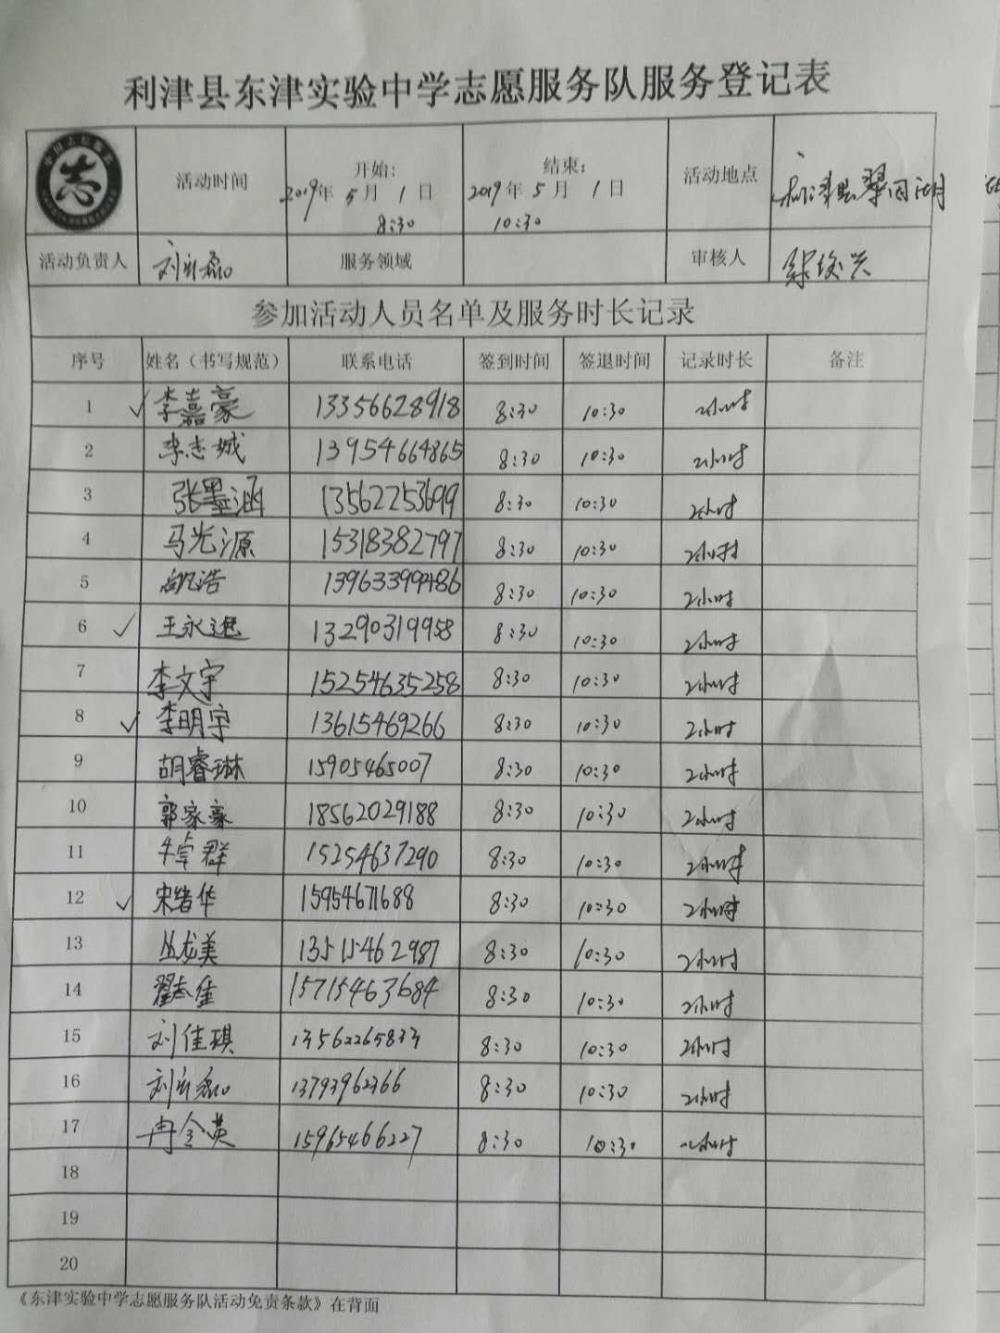 利津县东津实验中学志愿服务队服务登记表
志
活动时间 开始: 2019年 5月 1日 8:30 结束: 2019年 5月 1日 10:30 活动地点 利津县翠西湖
活动负责人 服务领域 审核人
参加活动人员名单及服务时长记录
序号 姓名（书写规范） 联系电话 签到时间 签退时间 记录时长 备注
1 ✓ 李嘉豪 13356628918 8:30 10:30 2小时
2 李志城 13954664865 8:30 10:30 2小时
3 张墨涵 13562253699 8:30 10:30 2小时
4 马光源 15318382797 8:30 10:30 2小时
5 8:30 10:30 2小时
6 ✓ 13290319958 8:30 10:30 2小时
7 李文宇 15254635258 8:30 10:30 2小时
8 ✓ 李明宇 13615469266 8:30 10:30 2小时
9 胡睿琳 15905465007 8:30 10:30 2小时
10 郭家豪 18562029188 8:30 10:30 2小时
11 牛卓群 15254637290 8:30 10:30 2小时
12 ✓ 宋绪华 15954671688 8:30 10:30 2小时
13 丛龙美 13515462987 8:30 10:30 2小时
14 翟志佳 15715463684 8:30 10:30 2小时
15 刘佳琪 13562265833 8:30 10:30 2小时
16 13793962366 8:30 10:30 2小时
17 冉令英 15965466227 8:30 10:30 2小时
18
19
20
《东津实验中学志愿服务队活动免责条款》在背面